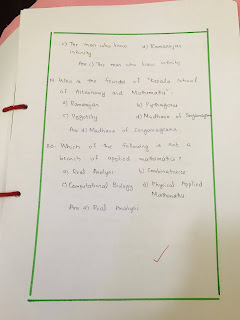 c) The man who knew d) Ramanujan
infinity
Ans: c) The man who knew infinity
19. Who is the founder of "Kerala School
of Astronomy and Mathematics".
a) Ramanujan b) Pythagoras
c) d) Madhava of Sangamagrama
Ans: d) Madhava of Sangamagrama
20. Which of the following is not a
branch of applied mathematics?
a) Real Analysis b) Combinatorics
c) Computational Biology d) Physical Applied
Mathematics
Ans: a) Real Analysis